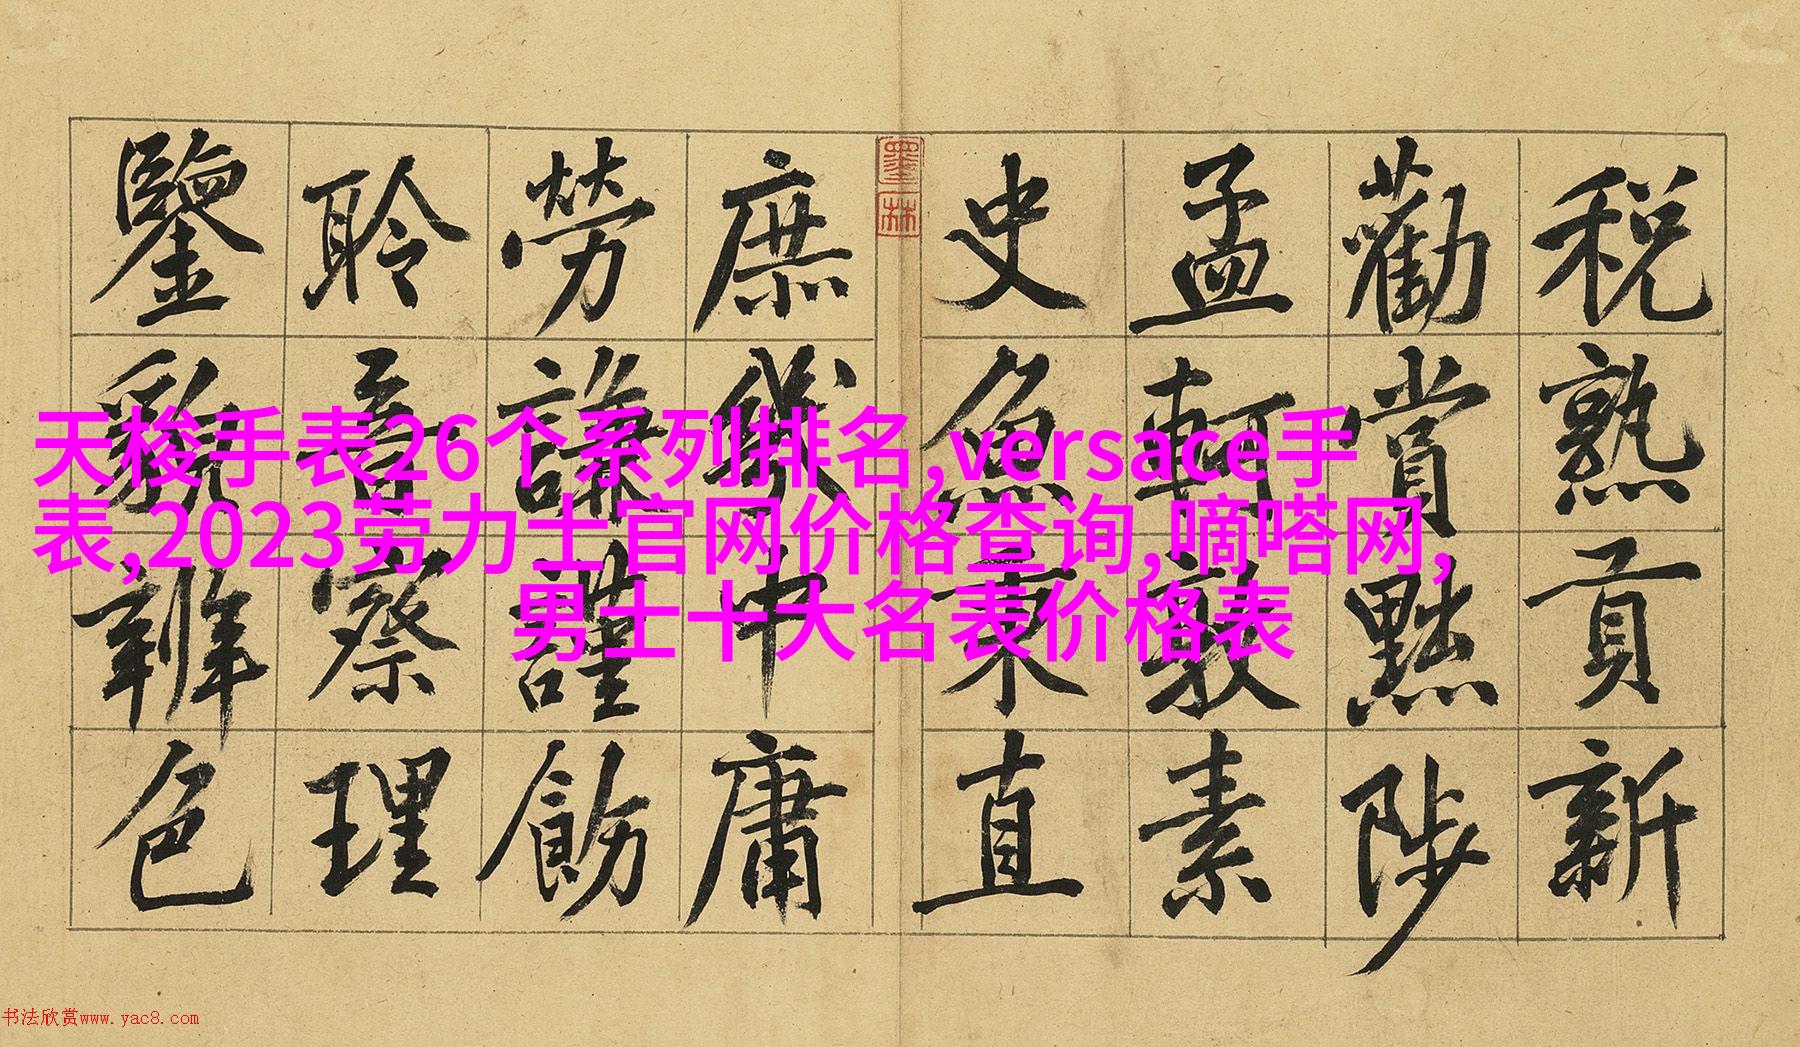 税熟貢新
勸賞黜陟
孟軻敦素
史魚秉直
墨林
庶幾中庸
勞謙謹飭
聆音察理
鑒貌辨色
天梭手表26个系列排名,versace手
表,2023劳力士官网价格查询,嘀嗒网,
男士十大名表价格表
书法欣赏www.yac8.com